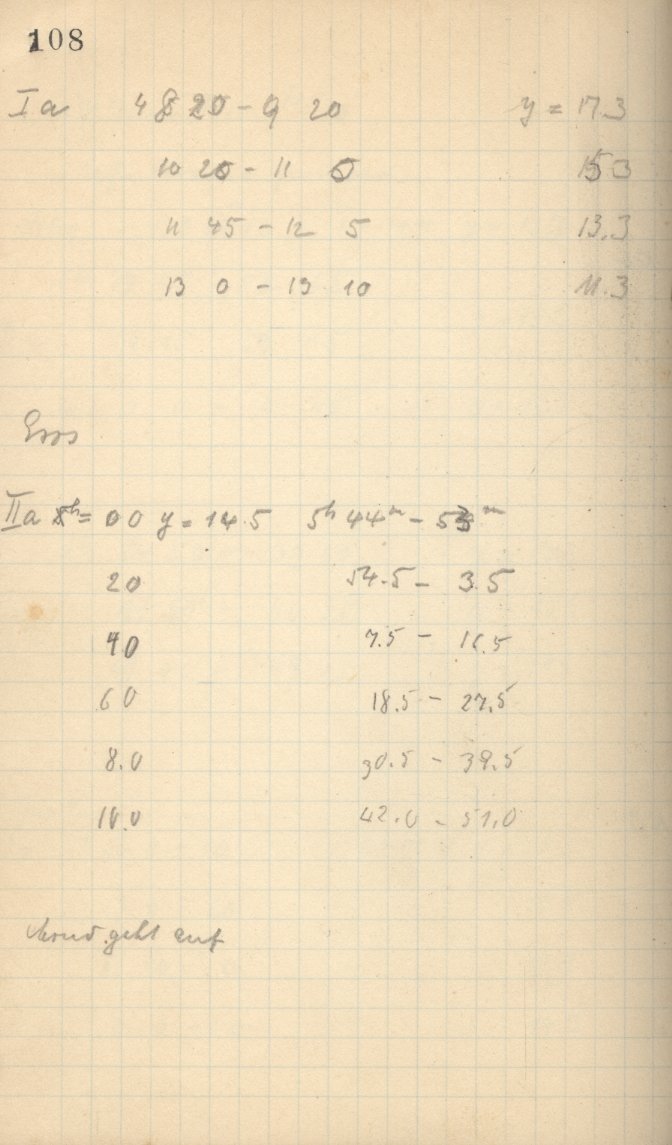 108
Ia 4 8 20 - 9 20 y = 17.3
10 20 - 11 0 15 3
11 45 - 12 5 13.3
13 0 - 13 10 11.3
Eros
IIa = 00 y = 14.5 5h 44m - 53m
20 54.5 - 3.5
40 7.5 - 16.5
60 18.5 - 27.5
8.0 30.5 - 39.5
10.0 42.0 - 51.0
Mond geht auf